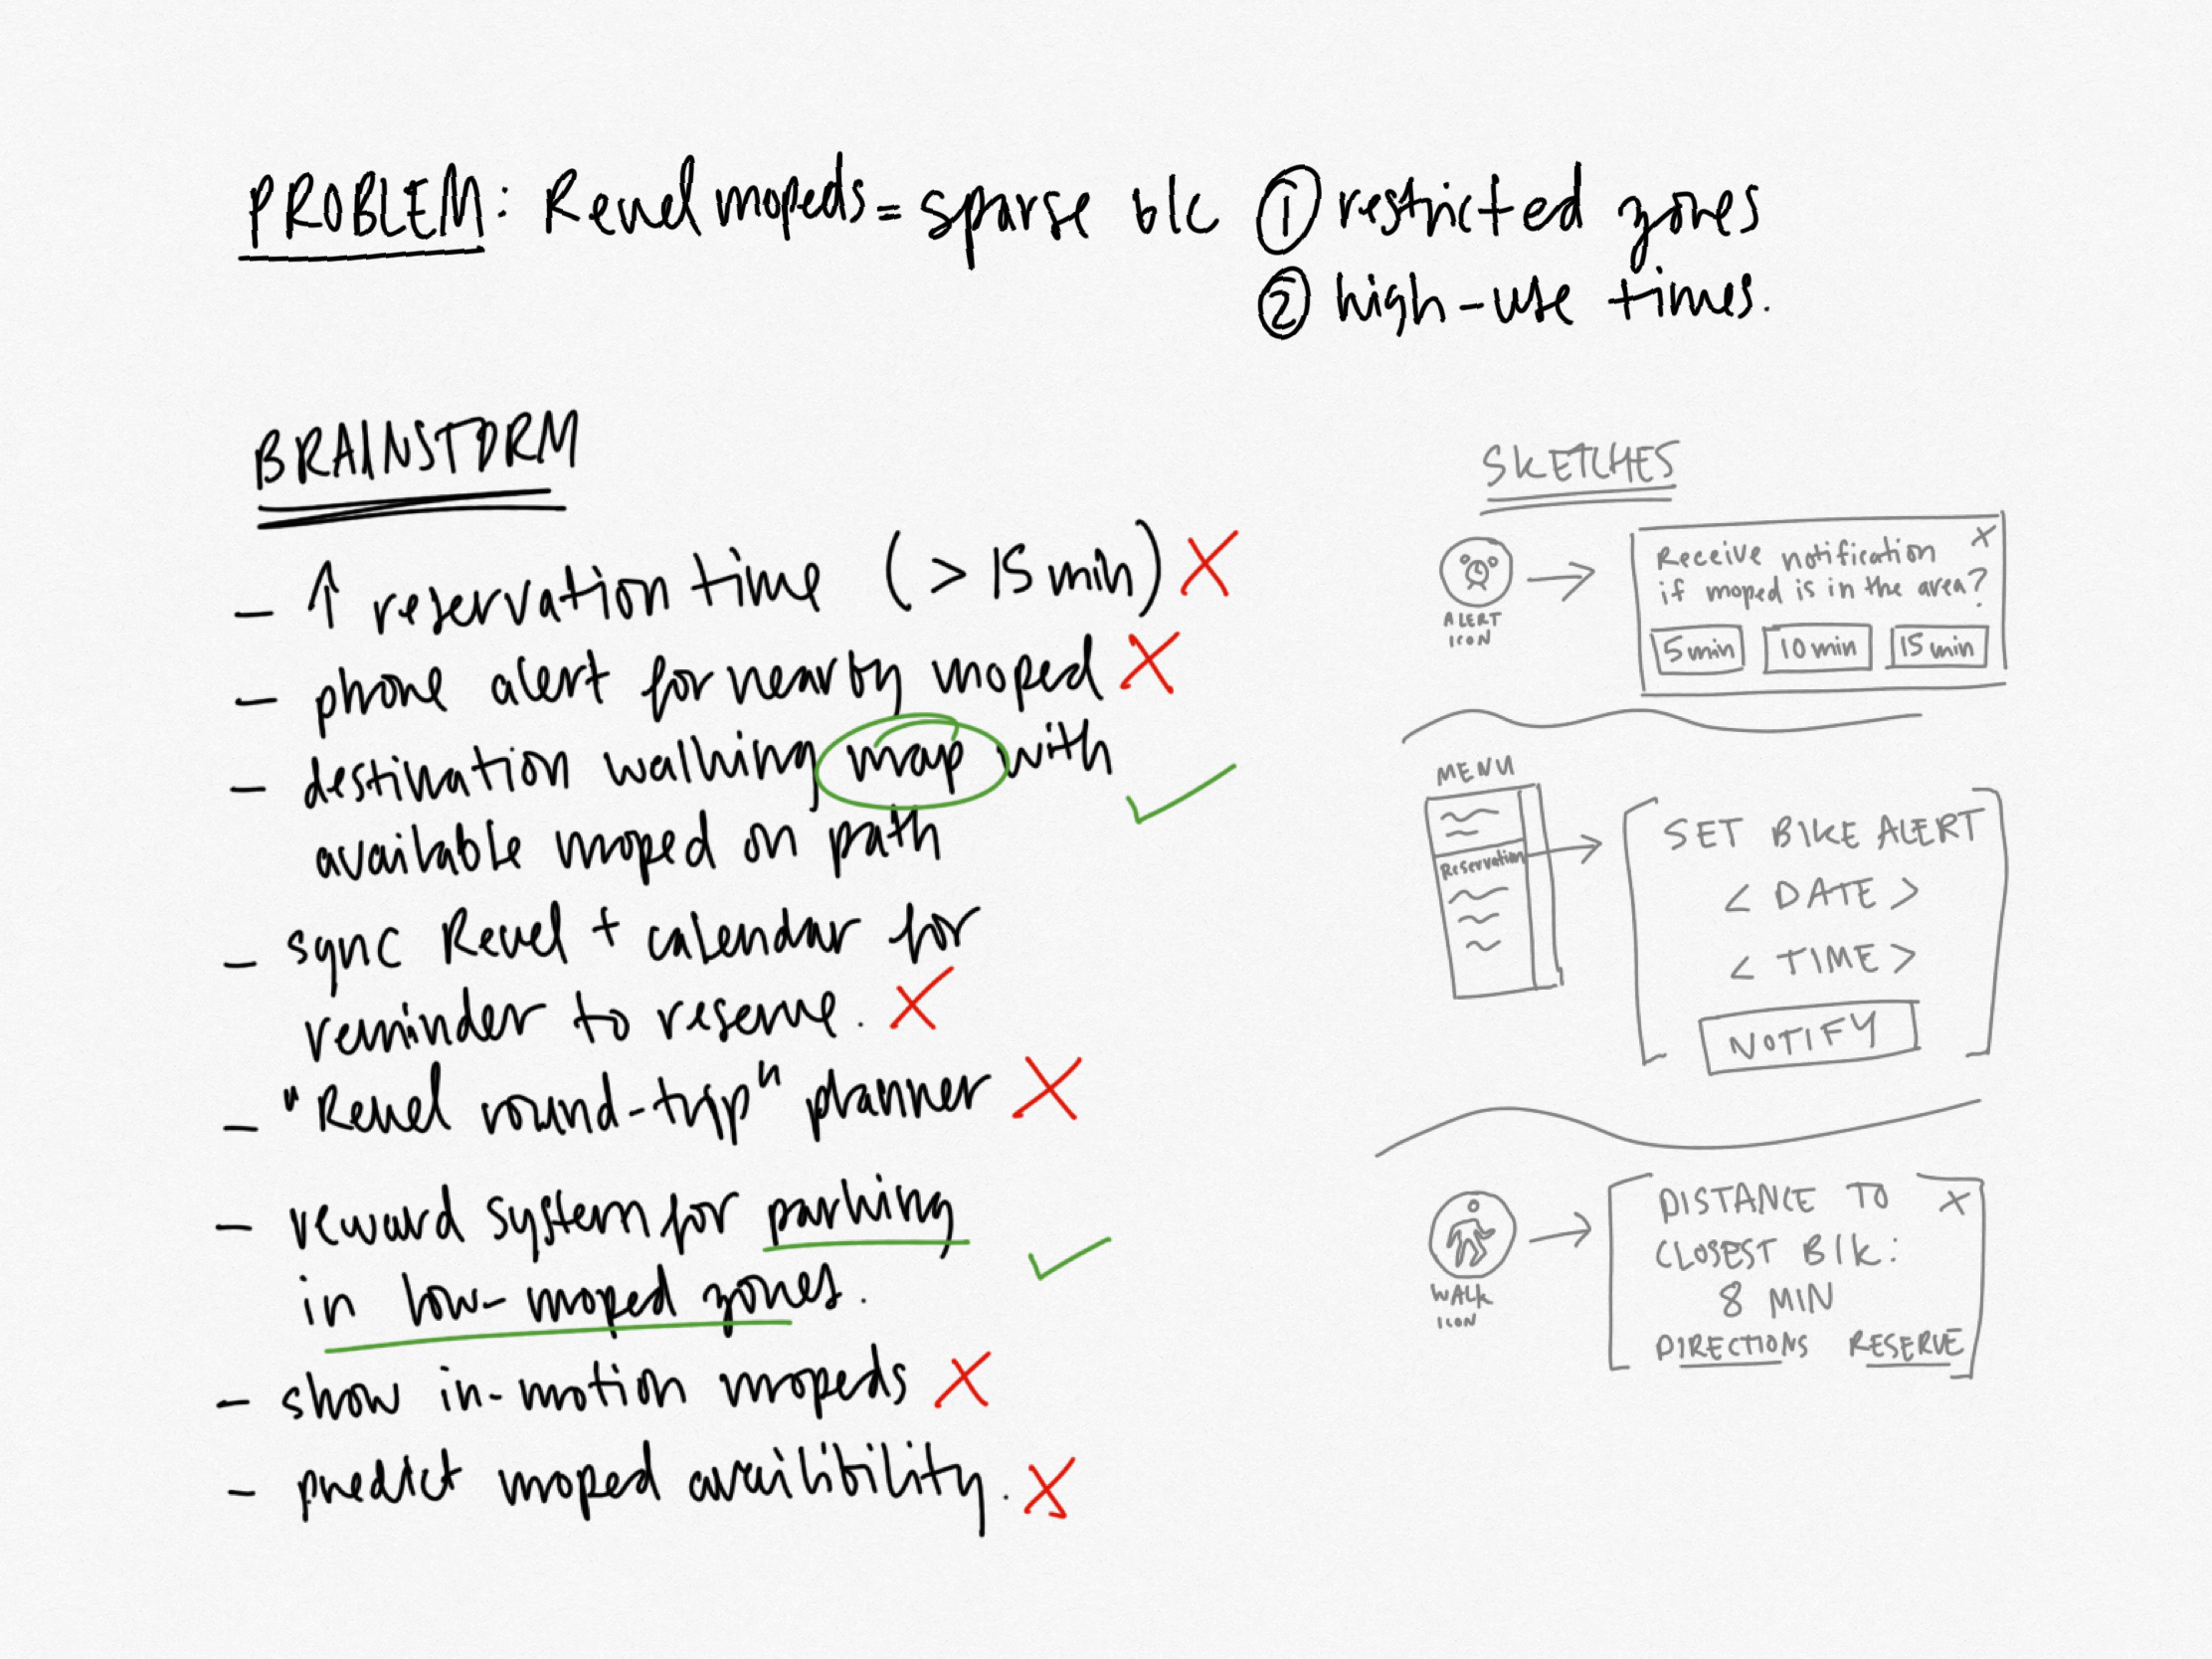 PROBLEM: Revel mopeds = sparse b/c ① restricted zones
② high-use times.
BRAINSTORM
- ↑ reservation time (> 15 min) X
- phone alert for nearby moped X
- destination walking map with
available moped on path ✓
- sync Revel + calendar for
reminder to reserve. X
- "Revel round-trip" planner X
- reward system for parking
in low-moped zones. ✓
- show in-motion mopeds X
- predict moped availibility. X
SKETCHES
ALERT
ICON
→
Receive notification X
if moped is in the area?
5 min 10 min 15 min
MENU
Reservation
→
SET BIKE ALERT
< DATE >
< TIME >
NOTIFY
WALK
ICON
→
DISTANCE TO X
CLOSEST BIK:
8 MIN
DIRECTIONS RESERVE